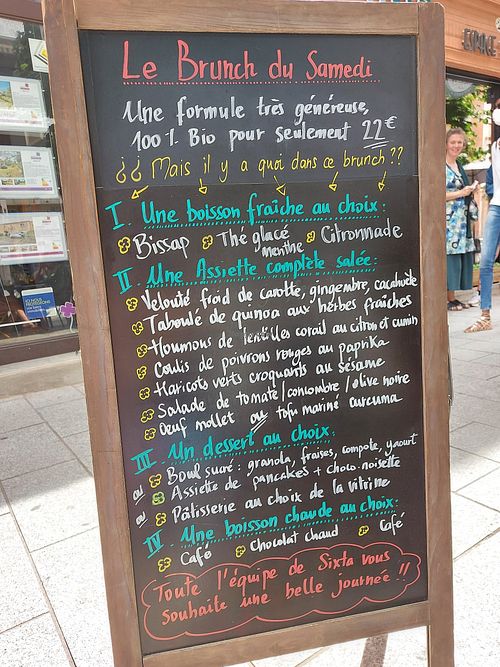 Le Brunch du Samedi
Une formule très généreuse,
100% Bio pour seulement 22€
¿¿ Mais il y a quoi dans ce brunch ??
I. Une boisson fraîche au choix:
Bissap Thé glacé menthe Citronnade
II. Une Assiette complète salée:
Velouté froid de carotte, gingembre, cacahuète
Taboulé de quinoa aux herbes fraîches
Houmous de lentilles corail au citron et cumin
Coulis de poivrons rouges au paprika
Haricots verts croquants au sésame
Salade de tomate/concombre/olive noire
Oeuf mollet ou tofu mariné curcuma
III. Un dessert au choix:
Bowl sucré: granola, fraises, compote, yaourt
ou Assiette de pancakes + choco-noisette
ou Pâtisserie au choix de la vitrine
IV. Une boisson chaude au choix:
Café Chocolat chaud Café
Toute l'équipe de Sixta vous
souhaite une belle journée!!
ESPACE